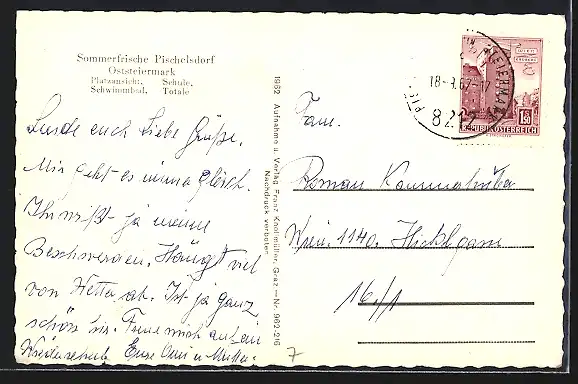 Sommerfrische Pischelsdorf
Oststeiermark
Platzansicht, Schule,
Schwimmbad, Totale
Sende euch Liebe Grüße.
Mir geht es immer gleich.
Ihr wißt ja meine
Beschwerden. Hängt viel
von Wetter ab. Ist ja ganz
schön hier. Freue mich auf ein
Wiedersehen Eure Omi u. Mutter.
1962 Aufnahme u. Verlag Franz Knollmüller, Graz — Nr. 962-2/6
Nachdruck verboten
7
STEIERMARK
18.-9.67-17
8212
WIEN
ERDBERG
1.50
REPUBLIK ÖSTERREICH
Fam.
Roman
Wien. 1140.
16/1